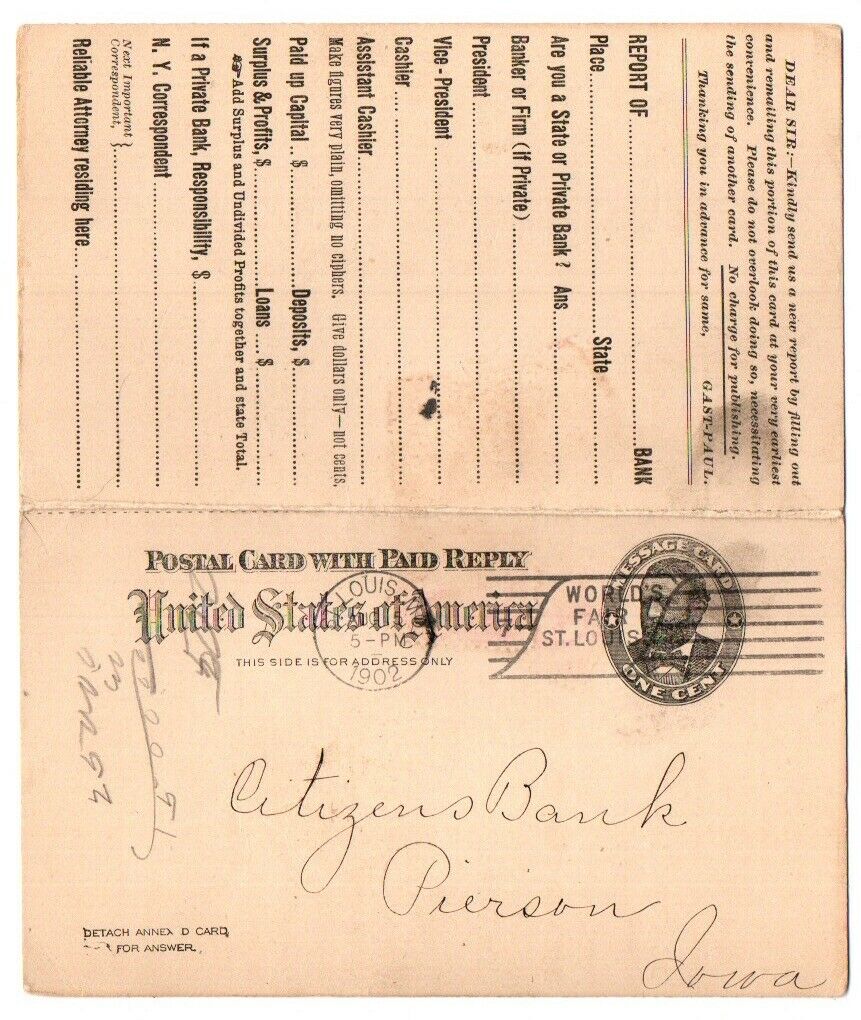 DEAR SIR:—Kindly send us a new report by filling out
and remailing this portion of this card at your very earliest
convenience. Please do not overlook doing so, necessitating
the sending of another card. No charge for publishing.
Thanking you in advance for same, GAST-PAUL.
REPORT OF BANK
Place State
Are you a State or Private Bank? Ans
Banker or Firm (if Private)
President
Vice-President
Cashier
Assistant Cashier
Make figures very plain, omitting no ciphers. Give dollars only—not cents.
Paid up Capital .. $ Deposits, $
Surplus & Profits, $ Loans .... $
☞ Add Surplus and Undivided Profits together and state Total.
If a Private Bank, Responsibility, $
N. Y. Correspondent
Next Important }
Correspondent, }
Reliable Attorney residing here
POSTAL CARD WITH PAID REPLY
United States of America
THIS SIDE IS FOR ADDRESS ONLY
MESSAGE CARD
ONE CENT
LOUIS, MO
5-PM
1902
WORLD'S
FAIR
ST. LOUIS
Citizens Bank
Pierson
Iowa
DETACH ANNEX D CARD
FOR ANSWER.